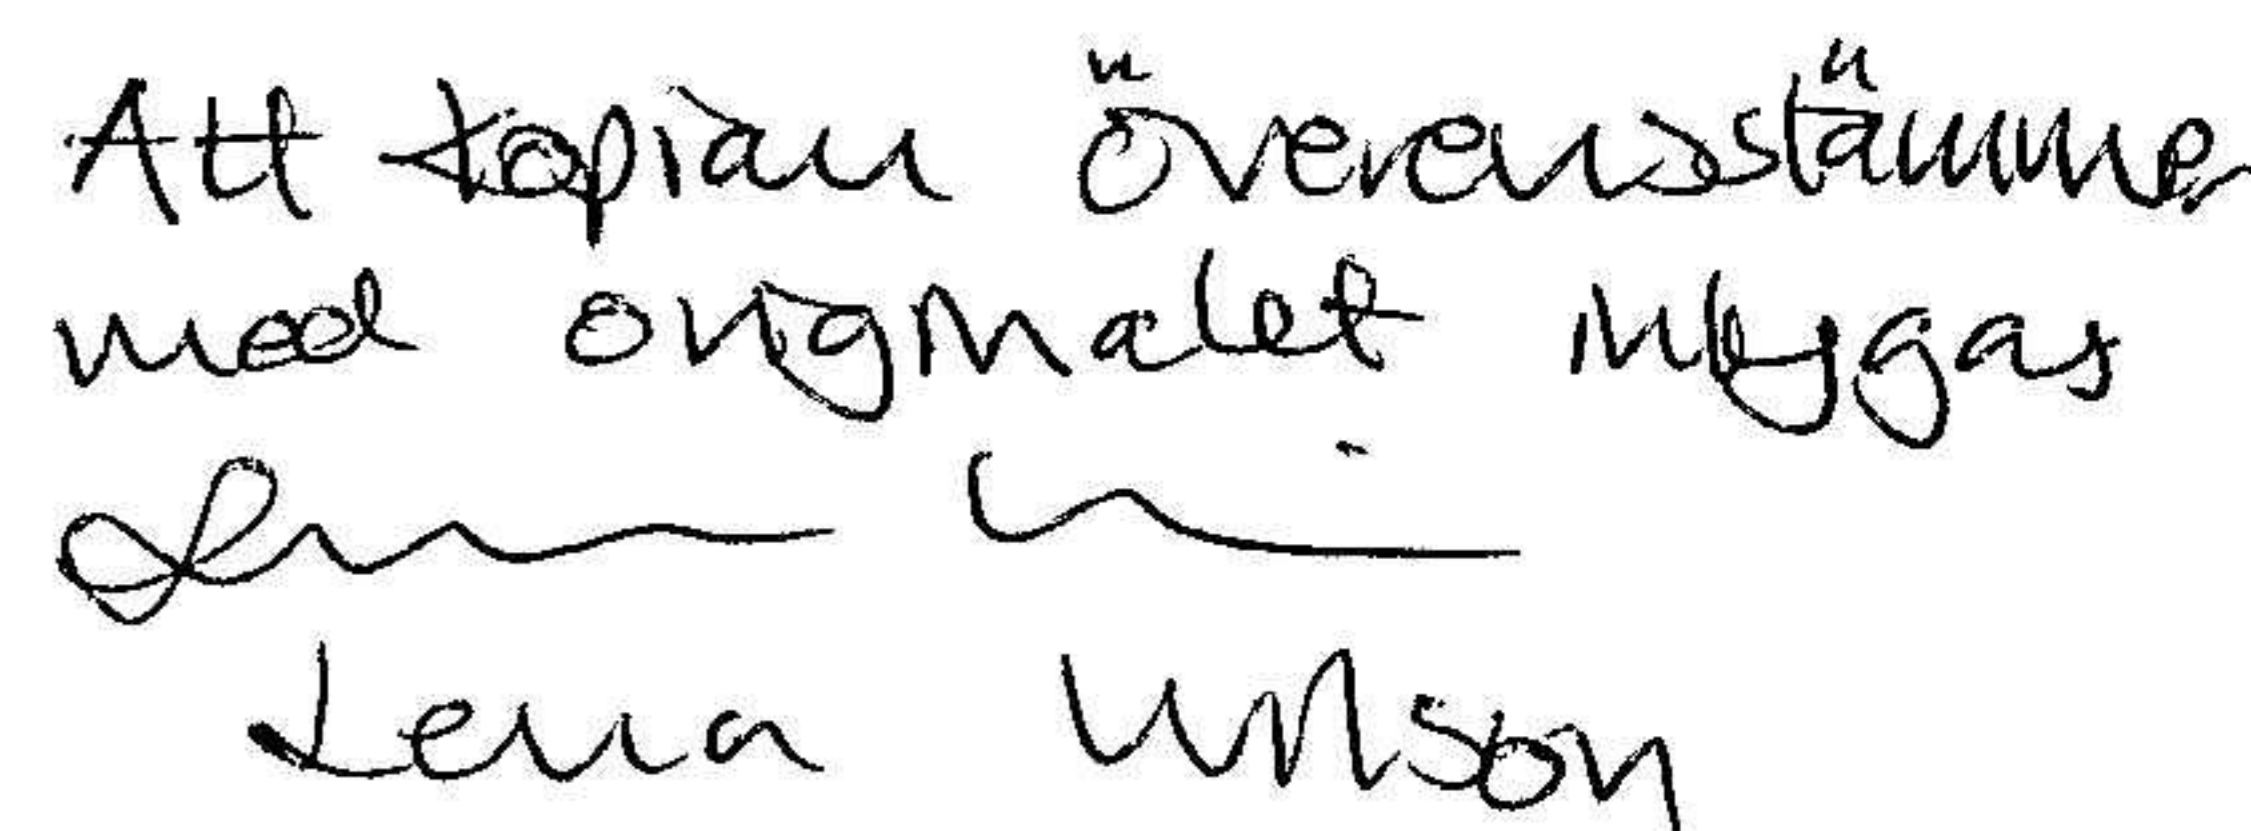 Att kopian överensstämmer
med originalet intygas
Lena Wilson